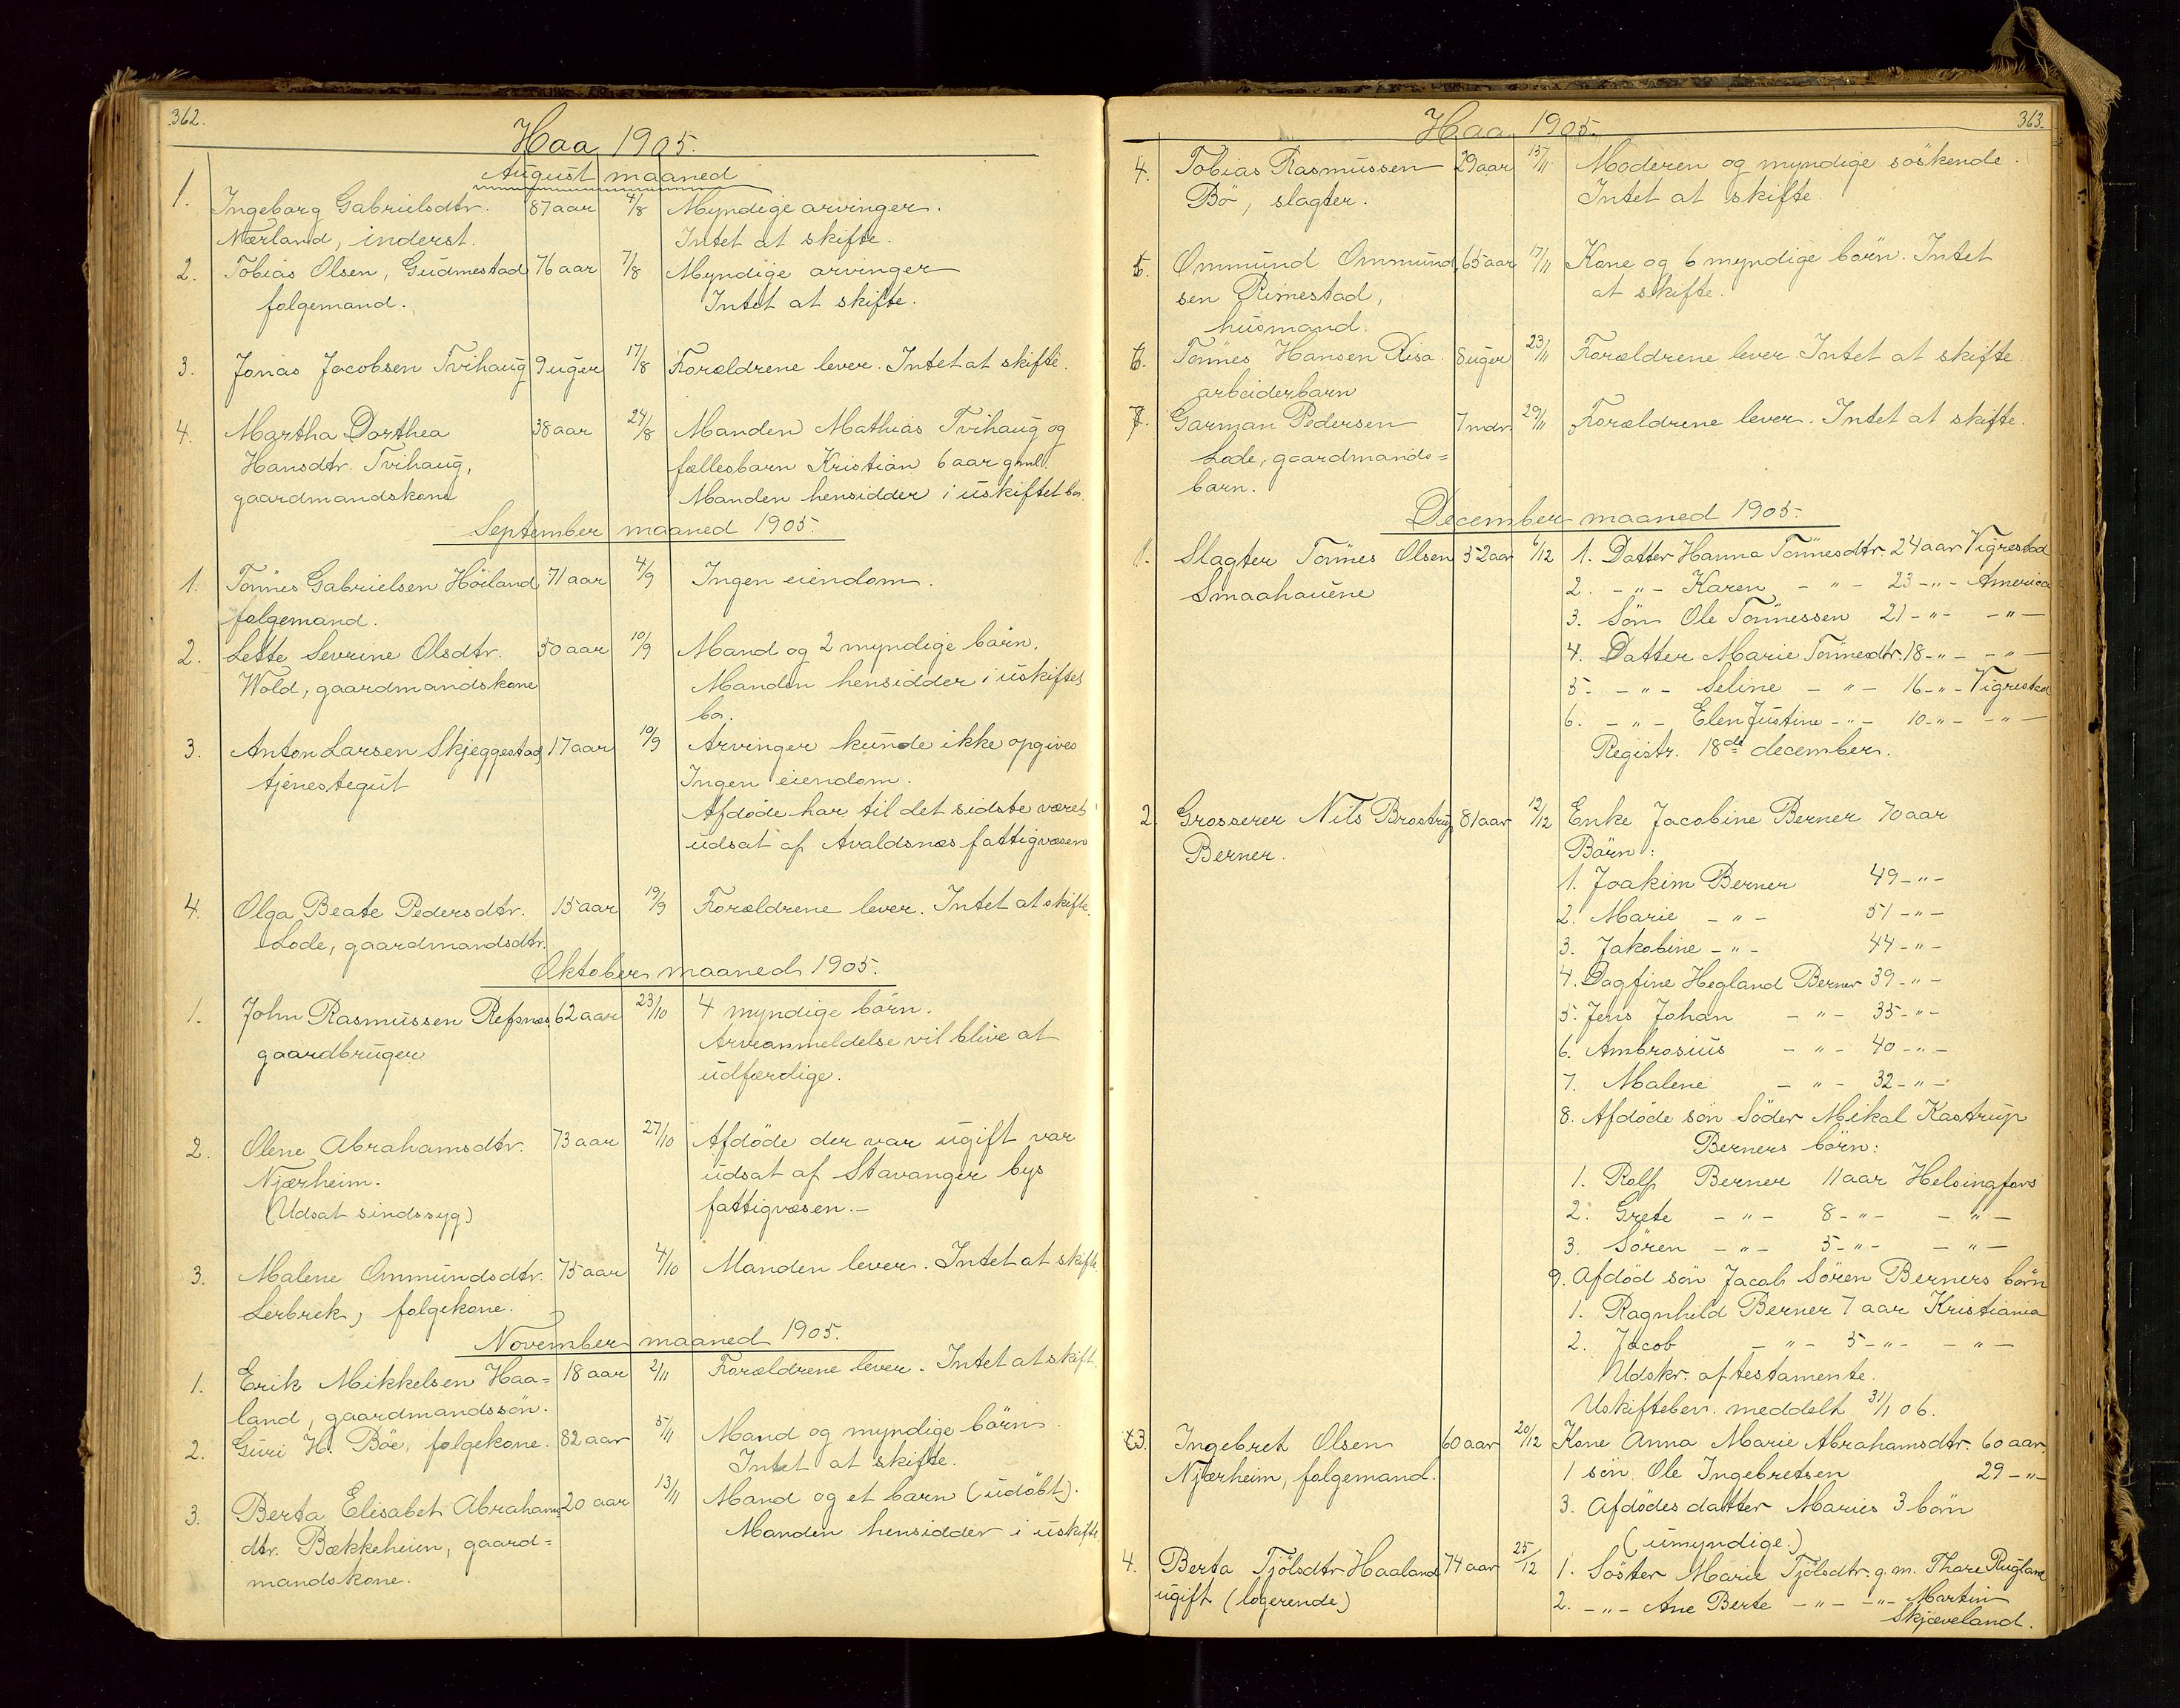 362.
Haa 1905.
August maaned
1. Ingeborg Gabrielsdtr. 87 aar 4/8 Myndige arvinger.
Nærland, inderst. Intet at skifte.
2. Tobias Olsen, Gudmestad 76 aar 7/8 Myndige arvinger
folgemand. Intet at skifte.
3. Jonas Jacobsen Tvihaug 9 uger 17/8 Forældrene lever. Intet at skifte.
4. Martha Dorthea 38 aar 24/8 Manden Mathias Tvihaug og
Hansdtr. Tvihaug, fællesbarn Kristian 6 aar gml.
gaardmandskone Manden hensidder i uskiftet bo.
September maaned 1905.
1. Tönnes Gabrielsen Höiland 71 aar 4/9 Ingen eiendom.
folgemand.
2. Lette Sevrine Olsdtr. 50 aar 10/9 Mand og 2 myndige börn.
Wold, gaardmandskone Manden hensidder i uskiftet
bo.
3. Anton Larsen Skjeggestad 17 aar 10/9 Arvinger kunde ikke opgives
tjenestegut Ingen eiendom.
Afdöde har til det sidste været
udsat af Avaldsnæs fattigvæsen
4. Olga Beate Pedersdtr. 15 aar 19/9 Forældrene lever. Intet at skifte.
Lode, gaardmandsdtr.
Oktober maaned 1905.
1. John Rasmussen Refsnes 62 aar 23/10 4 myndige börn.
gaardbruger Arveanmeldelse vil blive at
udfærdige.
2. Olene Abrahamsdtr. 73 aar 27/10 Afdöde der var ugift var
Njærheim. udsat af Stavanger bys
(Udsat sindssyg) fattigvæsen.-
3. Malene Ommundsdtr. 75 aar 4/10 Manden lever. Intet at skifte.
Lerbrek, folgekone.
November maaned 1905.
1. Erik Mikkelsen Haa= 18 aar 2/11 Forældrene lever. Intet at skift.
land, gaardmandssön.
2. Guri H. Böe, folgekone. 82 aar 5/11 Mand og myndige börn.
Intet at skifte.
3. Berta Elisabet Abrahams 20 aar 13/11 Mand og et barn (udöbt).
dtr. Bækkeheien, gaard= Manden hensidder i uskifte
mandskone.
363.
Haa 1905.
4. Tobias Rasmussen 29 aar 15/11 Moderen og myndige söskende.
Bö, slagter. Intet at skifte.
5. Ommund Ommund 65 aar 17/11 Kone og 6 myndige börn. Intet
sen Rimestad, at skifte.
husmand.
6. Tönnes Hansen Risa. 8 uger 23/11 Forældrene lever. Intet at skifte.
arbeiderbarn
7. Garman Pedersen 7 mdr. 29/11 Forældrene lever. Intet at skifte.
Lode, gaardmands=
barn.
December maaned 1905.
1. Slagter Tönnes Olsen 52 aar 6/12 1. Datter Hanna Tönnesdtr. 24 aar Vigrestad
Smaahauene 2. -"- Karen -"- 23 -"- America
3. Sön Ole Tönnessen 21 -"- -"-
4. Datter Marie Tönnesdtr. 18 -"- -"-
5. -"- Seline -"- 16 -"- Vigrestad
6. -"- Elen Justine -"- 10 -"- -"-
Registr. 18de december.
2. Grosserer Nils Brostrup 81 aar 12/12 Enke Jacobine Berner 70 aar
Berner. Börn:
1. Joakim Berner 49 -"-
2. Marie -"- 51 -"-
3. Jakobine -"- 44 -"-
4. Dagfine Hegland Berner 39 -"-
5. Jens Johan -"- 35 -"-
6. Ambrosius -"- 40 -"-
7. Malene -"- 32 -"-
8. Afdöde sön Söder Mikal Kastrup
Berners börn:
1. Rolf Berner 11 aar Helsingfors
2. Grete -"- 8 -"- -"-
3. Sören -"- 5 -"- -"-
9. Afdöd sön Jacob Sören Berners börn
1. Ragnhild Berner 7 aar Kristiania
2. Jacob -"- 5 -"- -"-
Udskr. af testamente.
Uskiftebev. meddelt 31/1 06.
3. Ingebret Olsen 60 aar 20/12 Kone Anna Marie Abrahamsdtr. 60 aar
Njærheim, folgemand. 1 sön Ole Ingebretsen 29 -"-
3. Afdödes datter Maries 3 börn
(umyndige.)
4. Berta Tjölsdtr Haaland 74 aar 25/12 1. Söster Marie Tjölsdtr. g.m. Thore Rugland
ugift (logerende) 2. -"- Ane Berte -"- -"- Martin
Skjæveland.